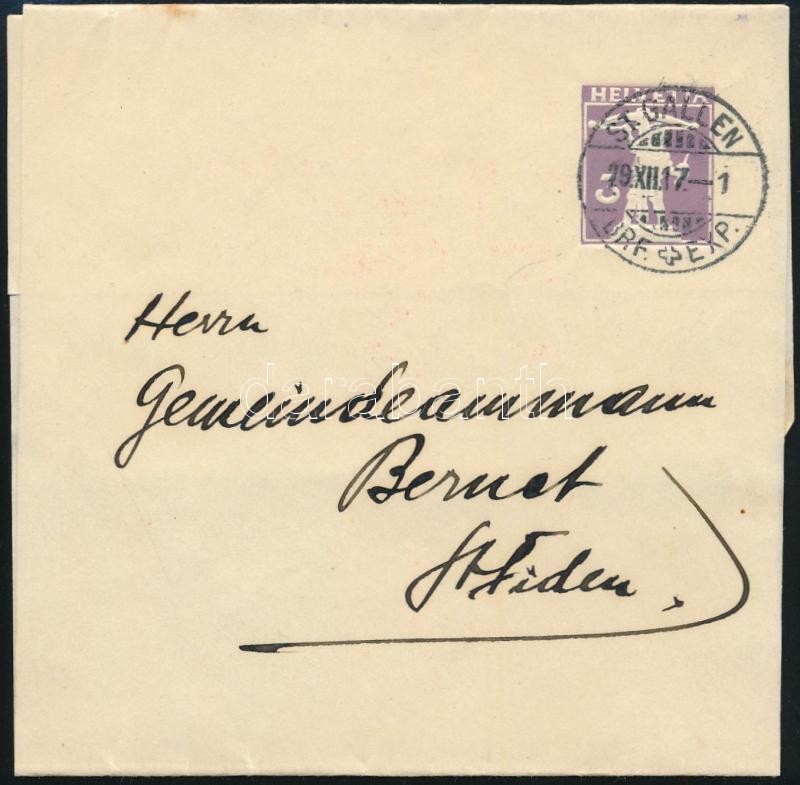 HELVETIA
ST. GALLEN
29.XII.17.–1
BRF. EXP.
3
Herrn
Gemeindeammann
Bernet
St. Fiden.
darabanth